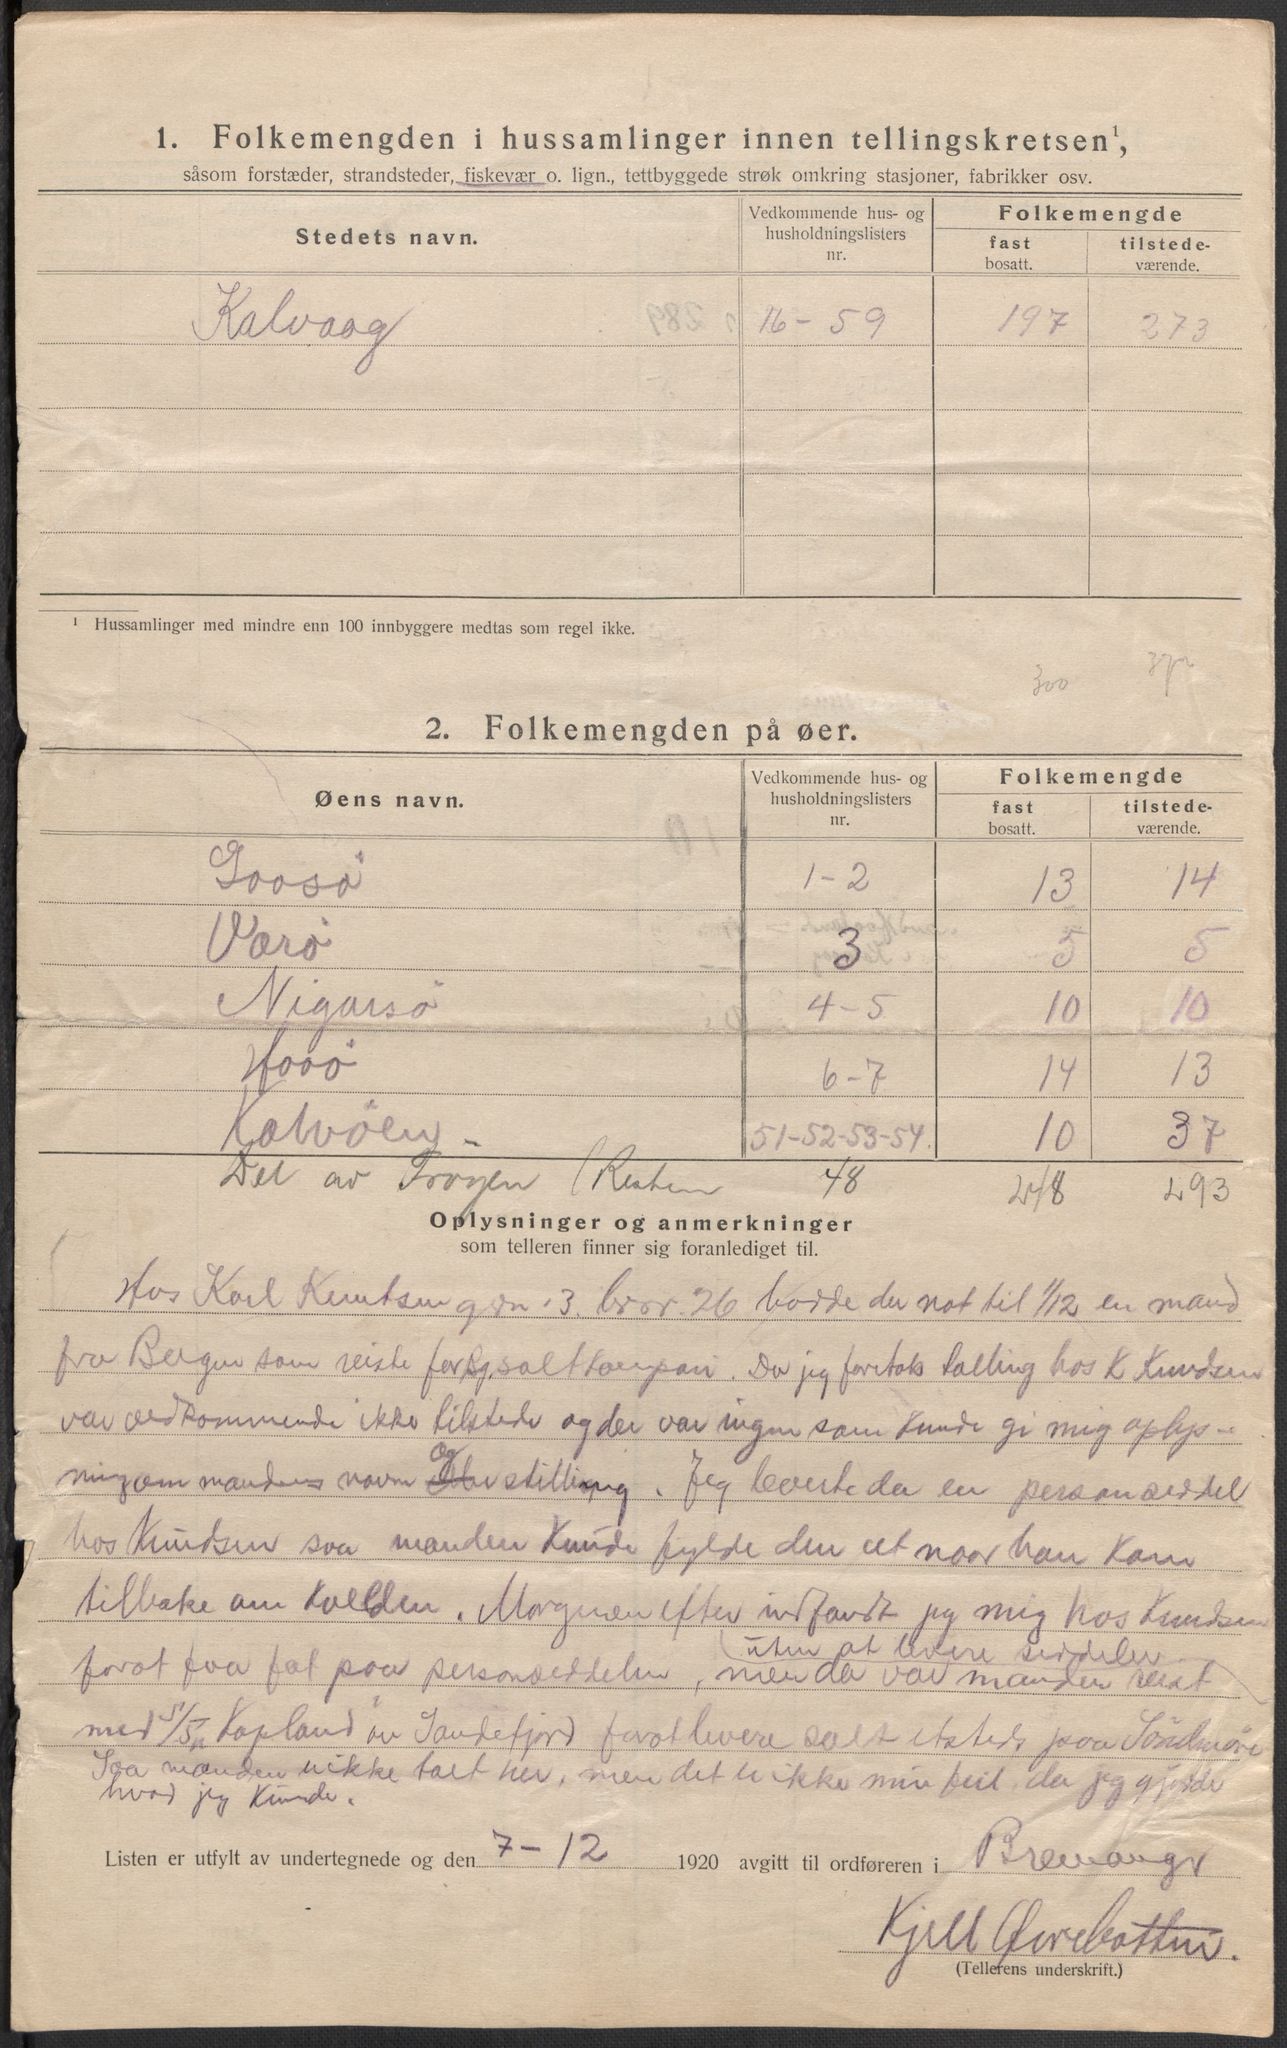 1. Folkemengden i hussamlinger innen tellingskretsen¹,
såsom forstæder, strandsteder, fiskevær o. lign., tettbyggede strøk omkring stasjoner, fabrikker osv.
Stedets navn.
Vedkommende hus- og husholdningslisters nr.
Folkemengde
fast bosatt.
tilstedeværende.
Kalvaag 16-59 197 273
¹ Hussamlinger med mindre enn 100 innbyggere medtas som regel ikke.
300
2. Folkemengden på øer.
Øens navn.
Vedkommende hus- og husholdningslisters nr.
Folkemengde
fast bosatt.
tilstedeværende.
Goosö 1-2 13 14
Varö 3 5 5
Nigarsö 4-5 10 10
Hooö 6-7 14 13
Kalvöen - 51-52-53-54. 10 37
Del av Fröyen (Resten 48 248 293
Oplysninger og anmerkninger
som telleren finner sig foranlediget til.
Hos Karl Knutsen 3. 26 bodde der nat til 1/12 en mand
fra Bergen som reiste for saltkompani. Da jeg foretok telling hos K Knudsen
var vedkommende ikke tilstede og der var ingen som kunde gi mig oplys-
ning om mandens navn og stilling. Jeg leverte da en personseddel
hos Knudsen saa manden kunde fylde den ut naar han kom
tilbake om kvelden. Morgnen efter indfandt jeg mig hos Knudsen
uten at levere seddelen
forat faa fat paa personseddelen, men da var manden reist
med S/S Kapland av Sandefjord forat levere salt etsteds paa Söndmöre
Saa manden er ikke talt her, men det er ikke min feil da jeg gjorde
hvad jeg kunde.
Listen er utfylt av undertegnede og den 7-12 1920 avgitt til ordføreren i Bremanger
Kjell Ørrebotten.
(Tellerens underskrift.)